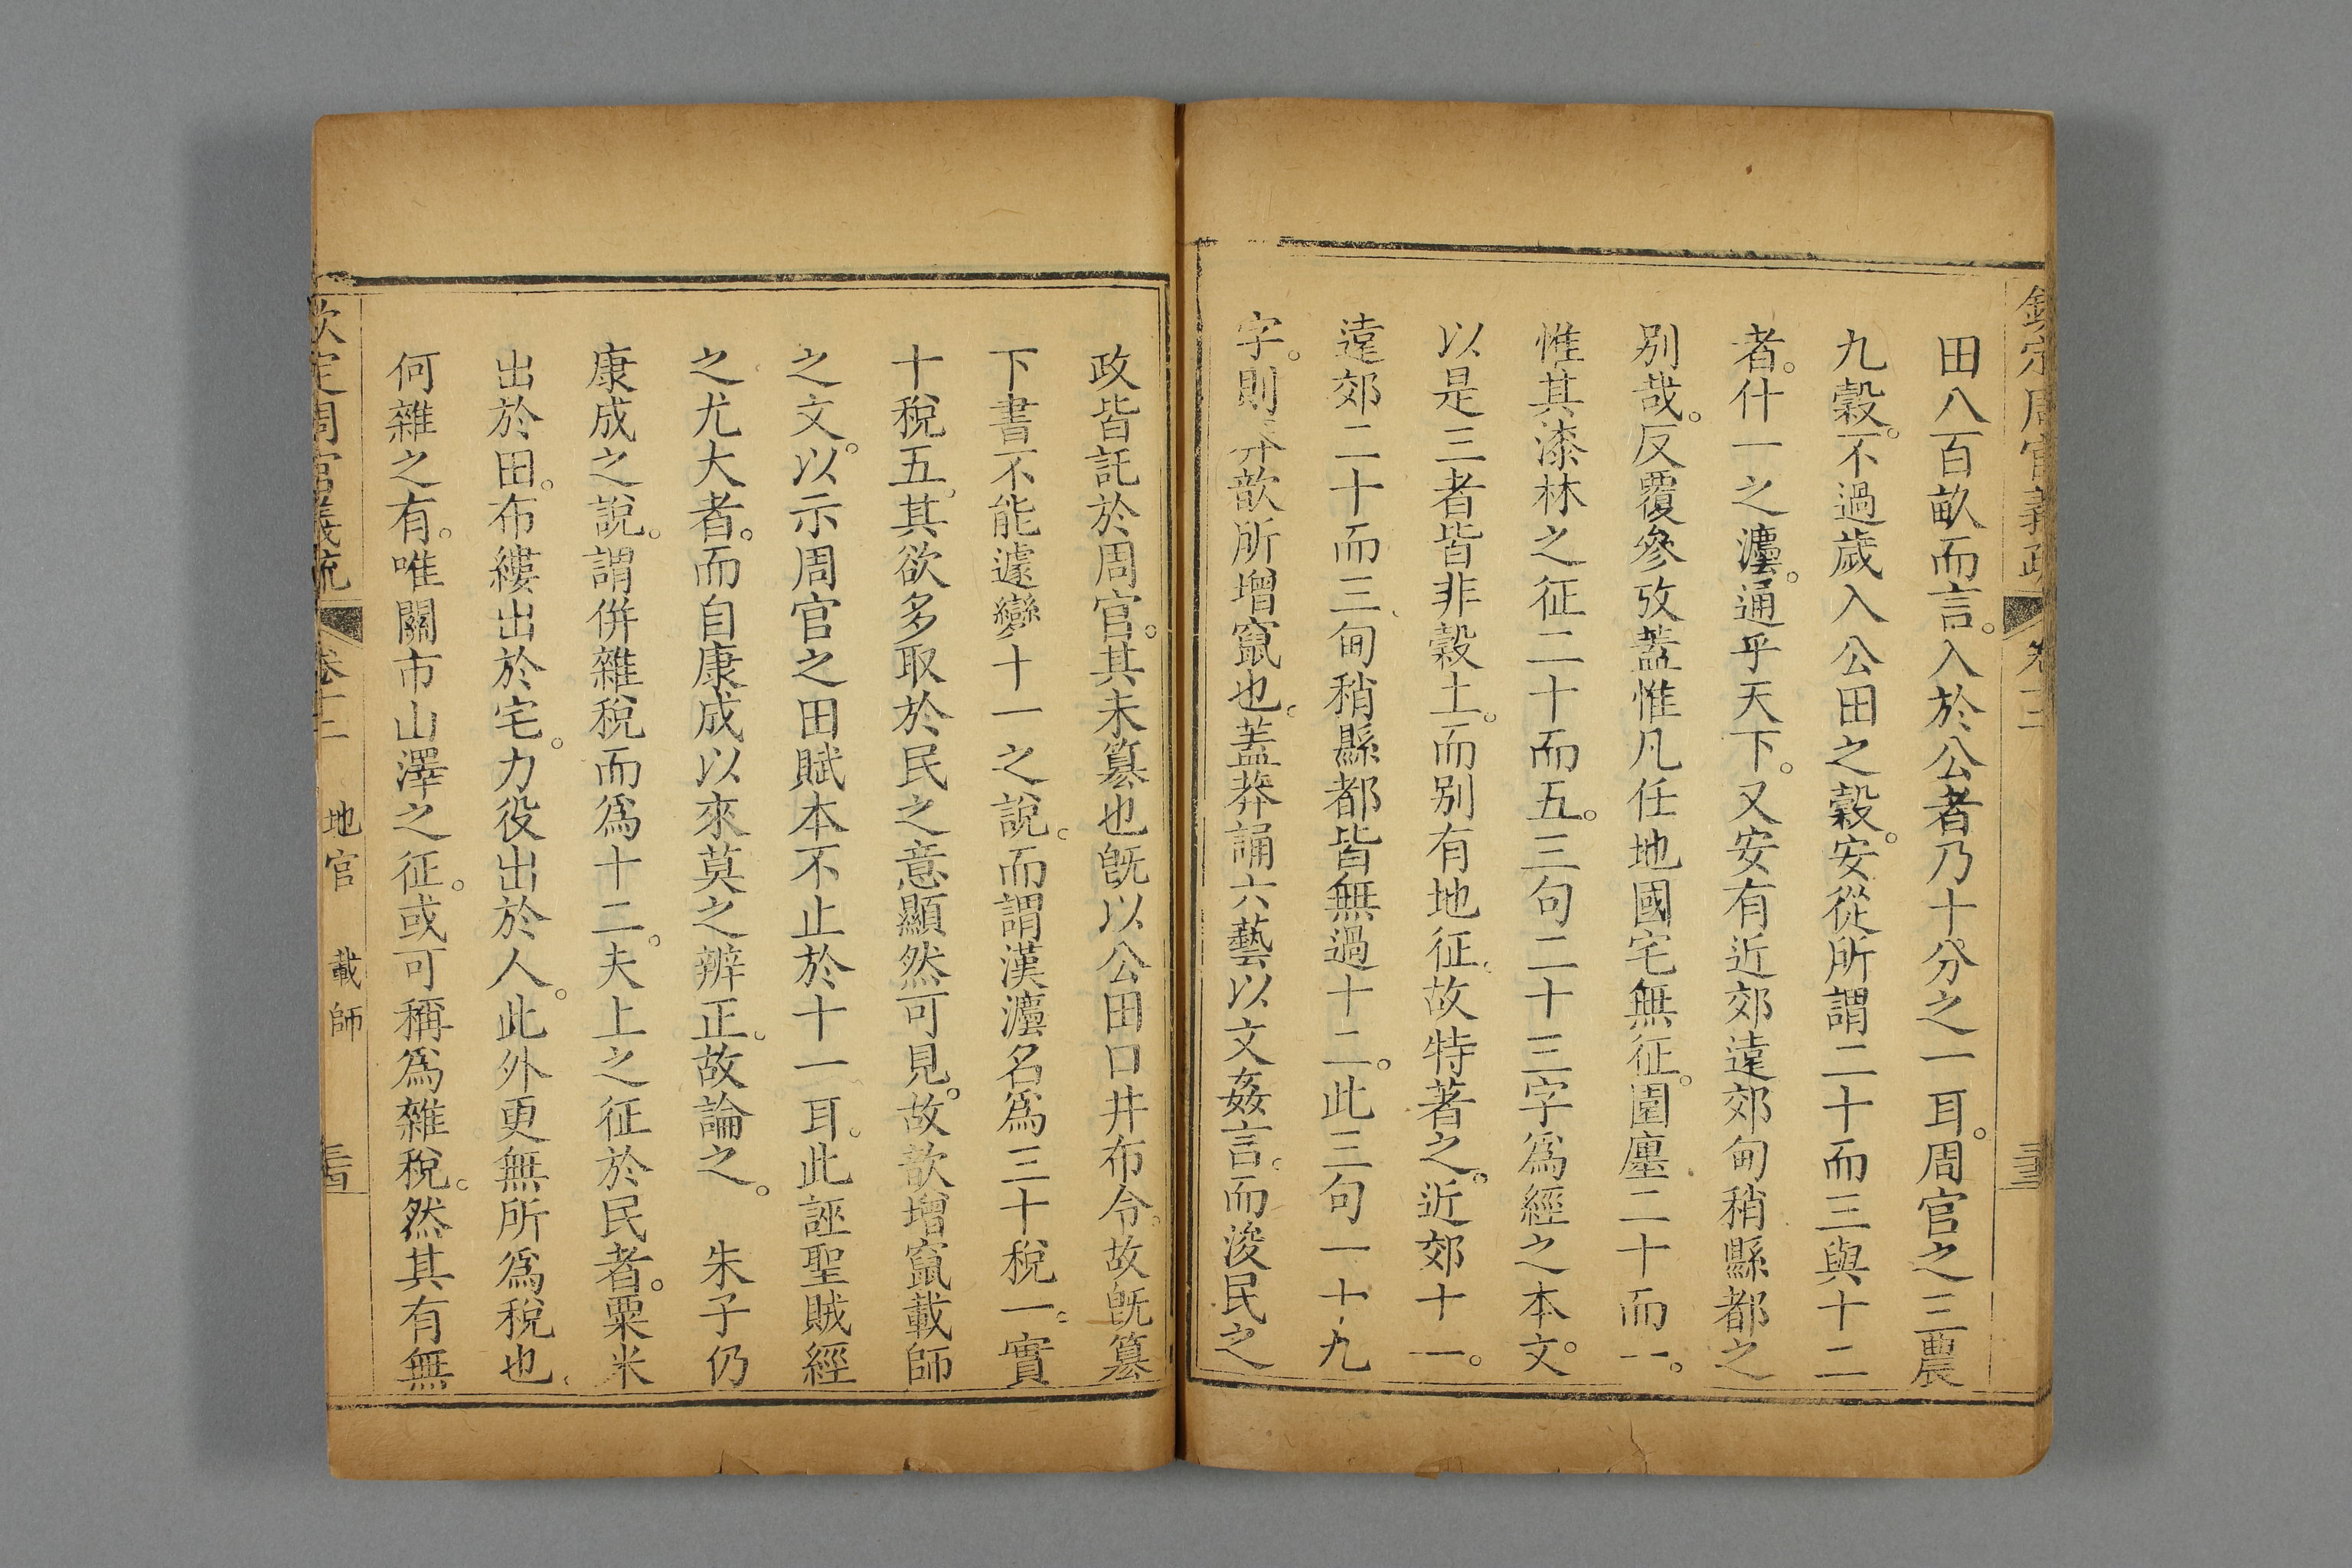 欽定周官義疏 卷十二
田八百畝而言。入於公者乃十分之一耳。周官之三農
九穀。不過歲入公田之穀。安從所謂二十而三與十二
者。什一之灋。通乎天下。又安有近郊遠郊甸稍縣都之
別哉。反覆參攷蓋惟凡任地國宅無征。園廛二十而一。
惟其漆林之征二十而五。三句二十三字爲經之本文。
以是三者皆非穀土。而別有地征。故特著之。近郊十一。
遠郊二十而三、甸稍縣都皆無過十二。此三句一十九
字。則莽歆所增竄也。蓋莽誦六藝以文姦言。而浚民之
政皆託於周官。其未篡也旣以公田口井布令。故旣篡
下書不能遽變十一之說。而謂漢灋名爲三十稅一。實
十稅五。其欲多取於民之意顯然可見。故歆增竄載師
之文。以示周官之田賦本不止於十一耳。此誣聖賊經
之尤大者。而自康成以來莫之辨正。故論之。 朱子仍
康成之說。謂併雜稅而爲十二。夫上之征於民者。粟米
出於田。布縷出於宅。力役出於人。此外更無所爲稅也、
何雜之有。唯關市山澤之征。或可稱爲雜稅。然其有無
欽定周官義疏 卷十二 地官 載師